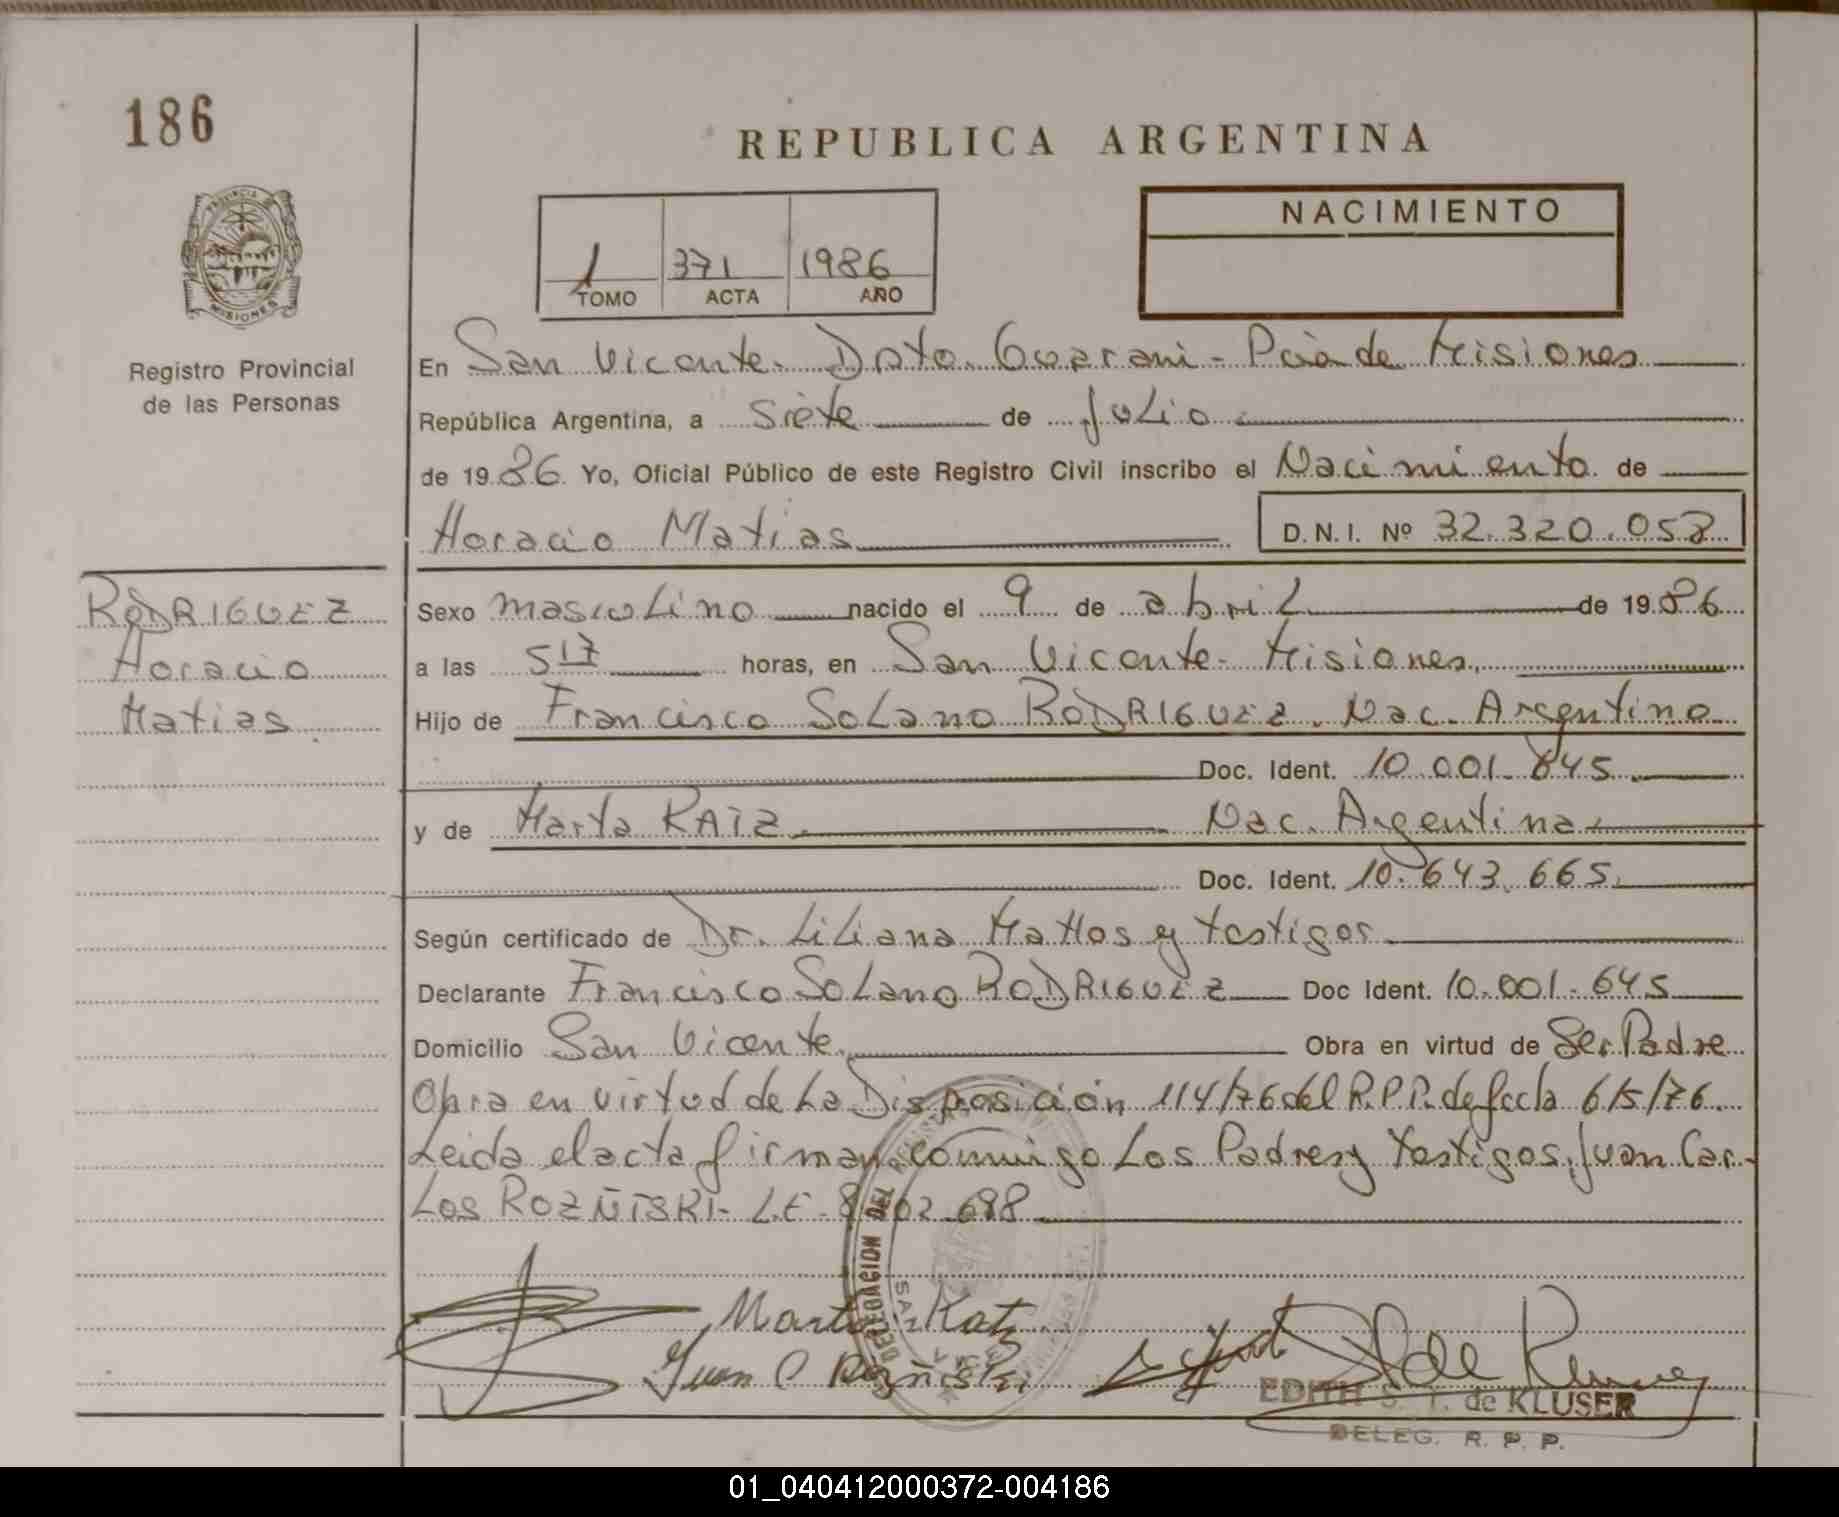 186
REPUBLICA ARGENTINA
PROVINCIA DE
MISIONES
Registro Provincial
de las Personas
1 371 1986
TOMO ACTA AÑO
NACIMIENTO
En San Vicente. Dpto. Guarani - Pcia de Misiones
República Argentina, a siete de Julio
de 1986 Yo, Oficial Público de este Registro Civil inscribo el Nacimiento de
Horacio Matias D. N. I. Nº 32.320.058
RODRIGUEZ
Horacio
Matias
Sexo masculino nacido el 9 de abril de 1986
a las 5 17 horas, en San Vicente - Misiones
Hijo de Francisco Solano RODRIGUEZ. Nac. Argentino
Doc. Ident. 10.001.645
y de Marta KATZ Nac. Argentina
Doc. Ident. 10.643.665
Según certificado de Dr. Liliana Mattos y testigos
Declarante Francisco Solano RODRIGUEZ Doc Ident. 10.001.645
Domicilio San Vicente Obra en virtud de Ser Padre
Obra en virtud de la Disposición 114/76 del R.P.P. de fecha 6/5/76.
Leida el acta firman comigo Los Padres y testigos, Juan Car-
Los ROZÑISKI - L.E. 8 02.698
DELEGACION DEL
Marta Katz
Juan C Rozñiski
de Kluser
EDITH S. T. de KLUSER
DELEG. R. P. P.
01_040412000372-004186